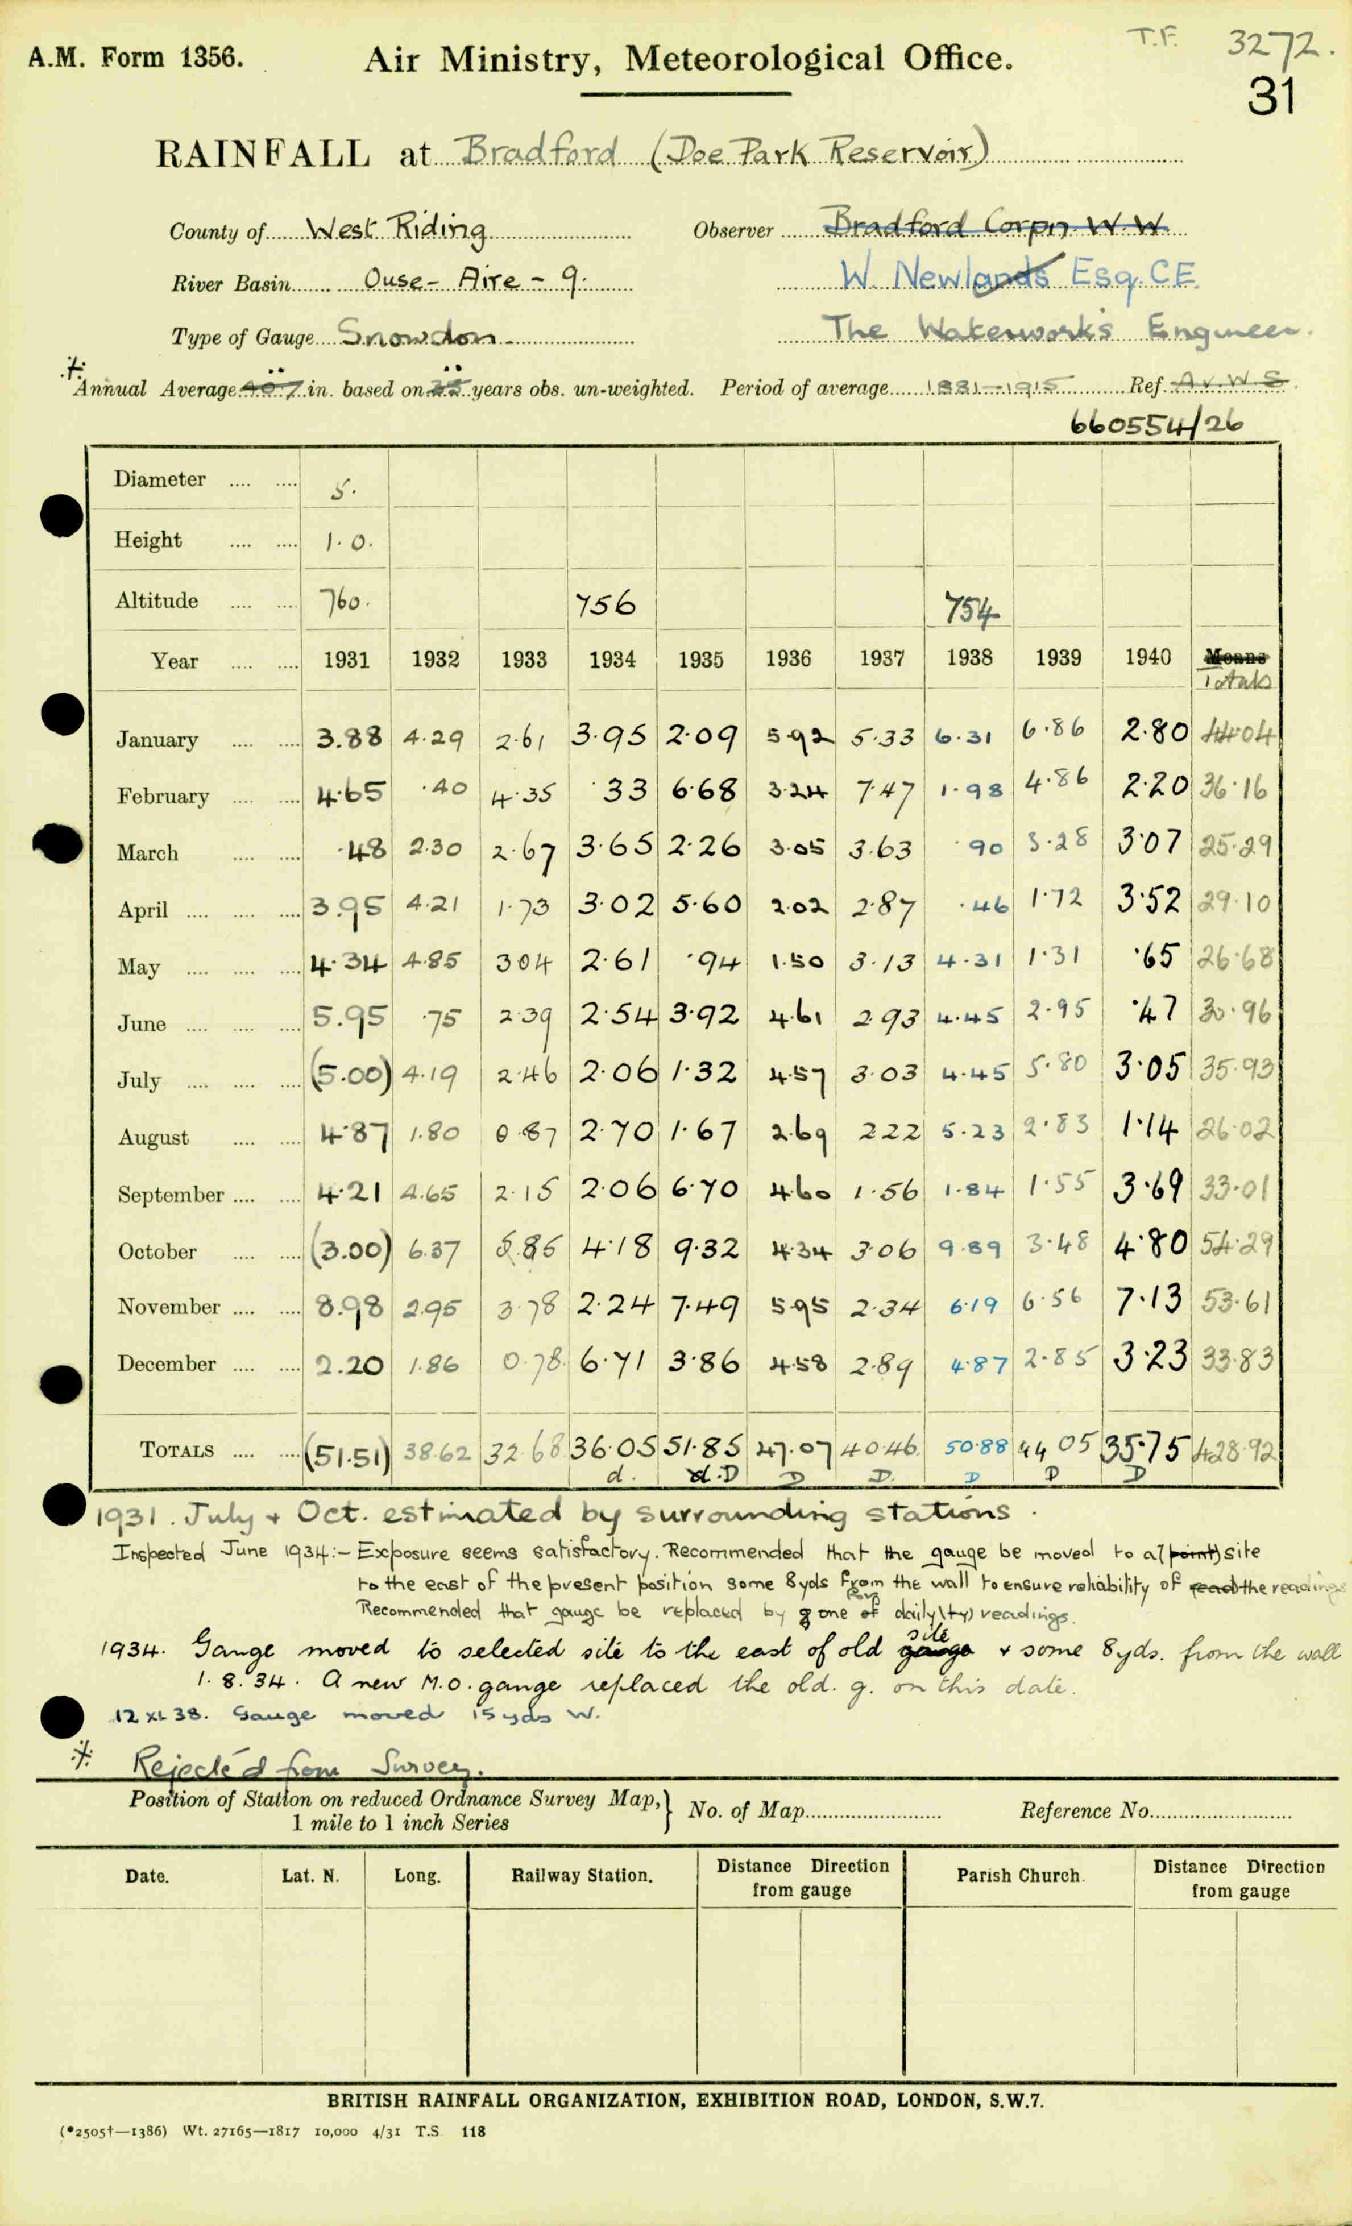 T.F. 3272.
A.M. Form 1356. Air Ministry, Meteorological Office.
31
RAINFALL at Bradford (Doe Park Reservoir)
County of West Riding Observer Bradford Corpn W.W.
River Basin Ouse - Aire - 9. W. Newlands Esq. CE.
Type of Gauge Snowdon The Waterworks Engineer.
Annual Average 40.7 in. based on 35 years obs. un-weighted. Period of average 1881-1915 Ref. Av. W S
660554/26
Diameter 5.
Height 1.0.
Altitude 760. 756 754
Year 1931 1932 1933 1934 1935 1936 1937 1938 1939 1940 Means
Totals
January 3.88 4.29 2.61 3.95 2.09 5.92 5.33 6.31 6.86 2.80 44.04
February 4.65 .40 4.35 .33 6.68 3.24 7.47 1.98 4.86 2.20 36.16
March .48 2.30 2.67 3.65 2.26 3.05 3.63 .90 3.28 3.07 25.29
April 3.95 4.21 1.73 3.02 5.60 2.02 2.87 .46 1.72 3.52 29.10
May 4.34 4.85 3.04 2.61 .94 1.50 3.13 4.31 1.31 .65 26.68
June 5.95 .75 2.39 2.54 3.92 4.61 2.93 4.45 2.95 .47 30.96
July (5.00) 4.19 2.46 2.06 1.32 4.57 3.03 4.45 5.80 3.05 35.93
August 4.87 1.80 0.87 2.70 1.67 2.69 2.22 5.23 2.83 1.14 26.02
September 4.21 4.65 2.15 2.06 6.70 4.60 1.56 1.84 1.55 3.69 33.01
October (3.00) 6.37 5.85 4.18 9.32 4.34 3.06 9.89 3.48 4.80 54.29
November 8.98 2.95 3.78 2.24 7.49 5.95 2.34 6.19 6.56 7.13 53.61
December 2.20 1.86 0.78 6.71 3.86 4.58 2.89 4.87 2.85 3.23 33.83
TOTALS (51.51) 38.62 32.68 36.05 51.85 47.07 40.46 50.88 44.05 35.75 428.92
d. d.D D D. D D D
1931. July + Oct. estimated by surrounding stations.
Inspected June 1934:- Exposure seems satisfactory. Recommended that the gauge be moved to a (point) site
to the east of the present position some 8yds from the wall to ensure reliability of read the readings
Recommended that gauge be replaced by one of for daily readings.
1934. Gauge moved to selected site to the east of old gauge site + some 8yds. from the wall
1.8.34. A new M.O. gauge replaced the old. g. on this date.
12 XI 38. Gauge moved 15 yds W.
Rejected from Survey.
Position of Station on reduced Ordnance Survey Map, } No. of Map Reference No.
1 mile to 1 inch Series
Date. Lat. N. Long. Railway Station. Distance Direction from gauge Parish Church. Distance Direction from gauge
BRITISH RAINFALL ORGANIZATION, EXHIBITION ROAD, LONDON, S.W.7.
(*2505†—1386) Wt. 27165—1817 10,000 4/31 T.S. 118